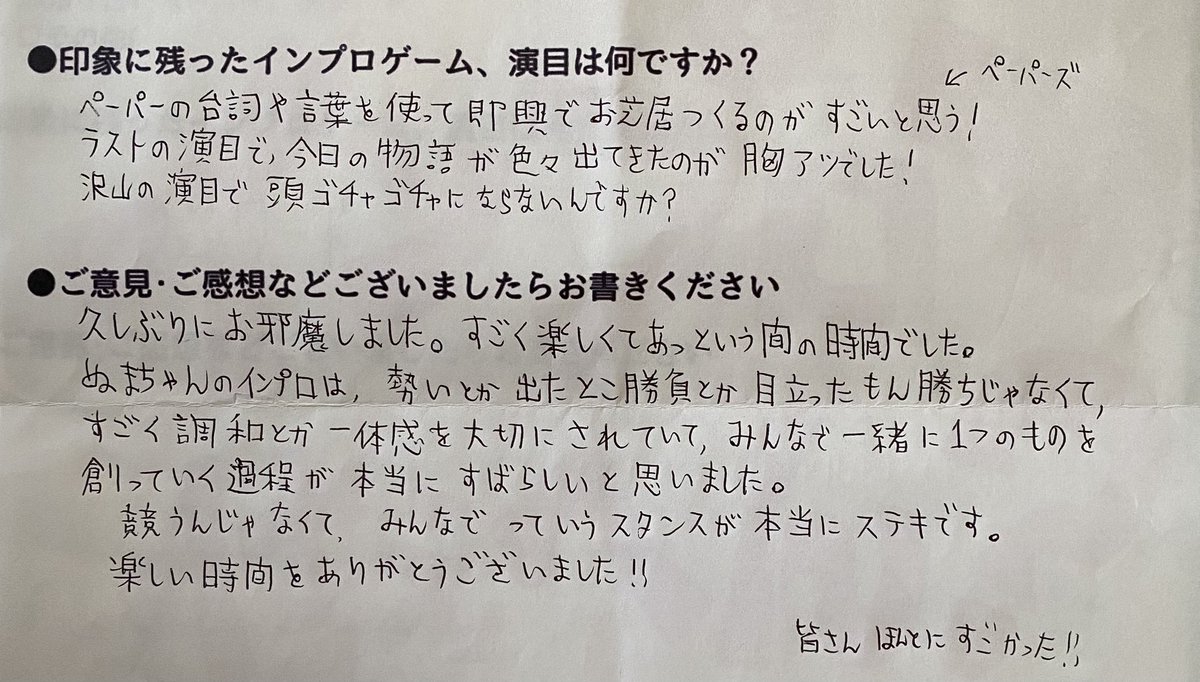 ●印象に残ったインプロゲーム、演目は何ですか？
↙ ペーパーズ
ペーパーの台詞や言葉を使って即興でお芝居つくるのがすごいと思う!
ラストの演目で、今日の物語が色々出てきたのが胸アツでした!
沢山の演目で頭ゴチャゴチャにならないんですか?
●ご意見・ご感想などございましたらお書きください
久しぶりにお邪魔しました。すごく楽しくてあっという間の時間でした。
ぬまちゃんのインプロは、勢いとか出たとこ勝負とか目立ったもん勝ちじゃなくて、
すごく調和とか一体感を大切にされていて、みんなで一緒に1つのものを
創っていく過程が本当にすばらしいと思いました。
競うんじゃなくて、みんなでっていうスタンスが本当にステキです。
楽しい時間をありがとうございました!!
皆さんほんとにすごかった!!